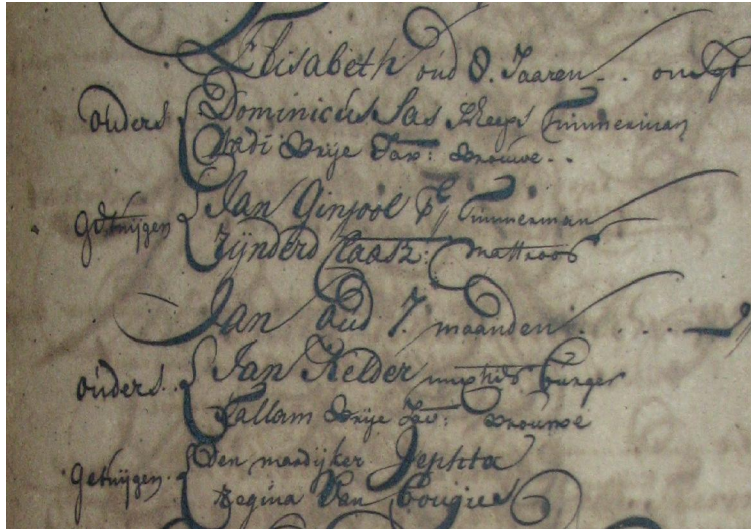 Elisabeth oud 8. Jaaren .. onegt
ouders
Dominicus Sas scheeps Timmerman
Vrije Jav: vrouwe ..
getuijgen
Jan Ginjool Timmerman
Rijnderd Claasz: mattroos
Jan oud 7. maanden . . . . .
ouders
Jan Kelder burger
Tallam vrije Jav: vrouwe
getuijgen
Den mardijker Jephta
Regina Van Bougies